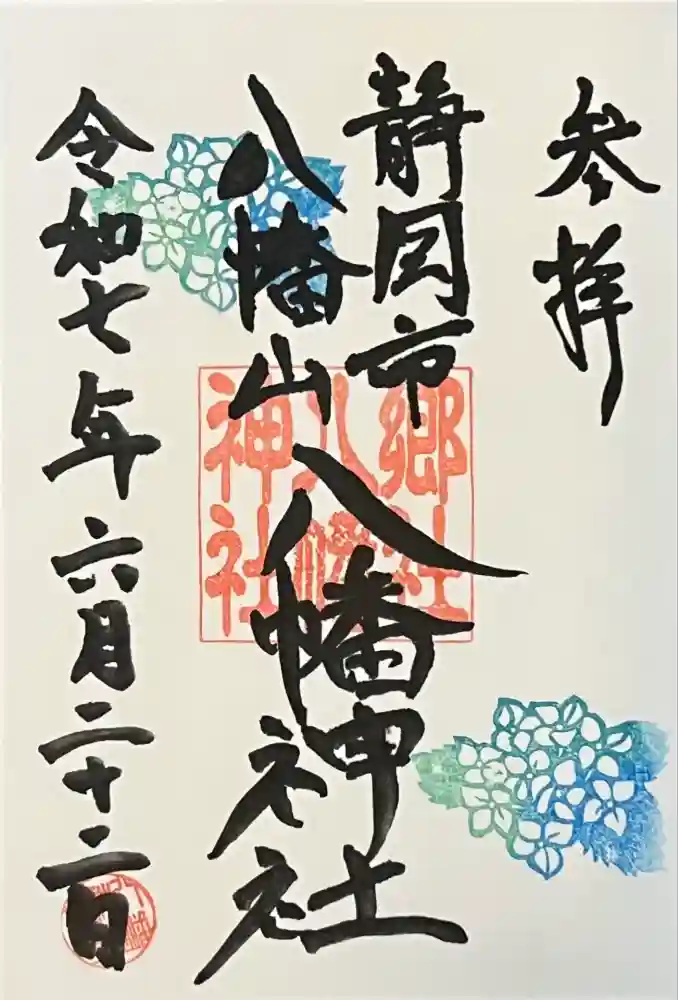 参拝
静岡市
八幡山
八幡神社
郷社
八幡
神社
令和七年六月二十二日